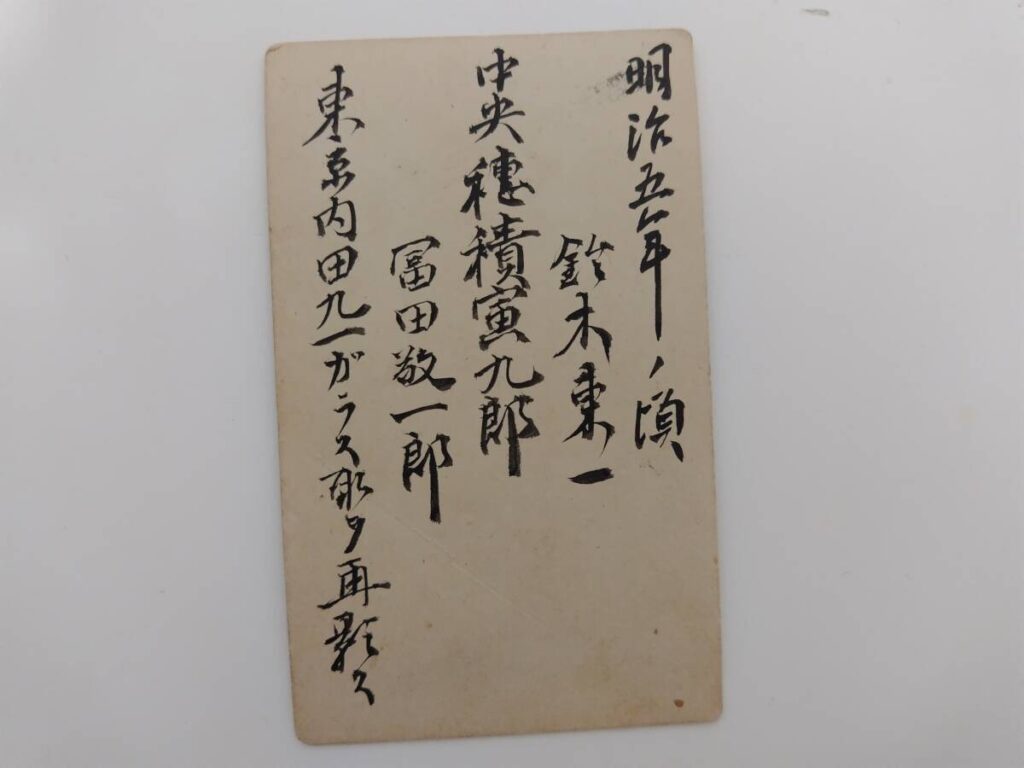 明治五年ノ頃
鈴木東一
中央穂積寅九郎
冨田敬一郎
東京内田九一ガラス取ヲ再影ス